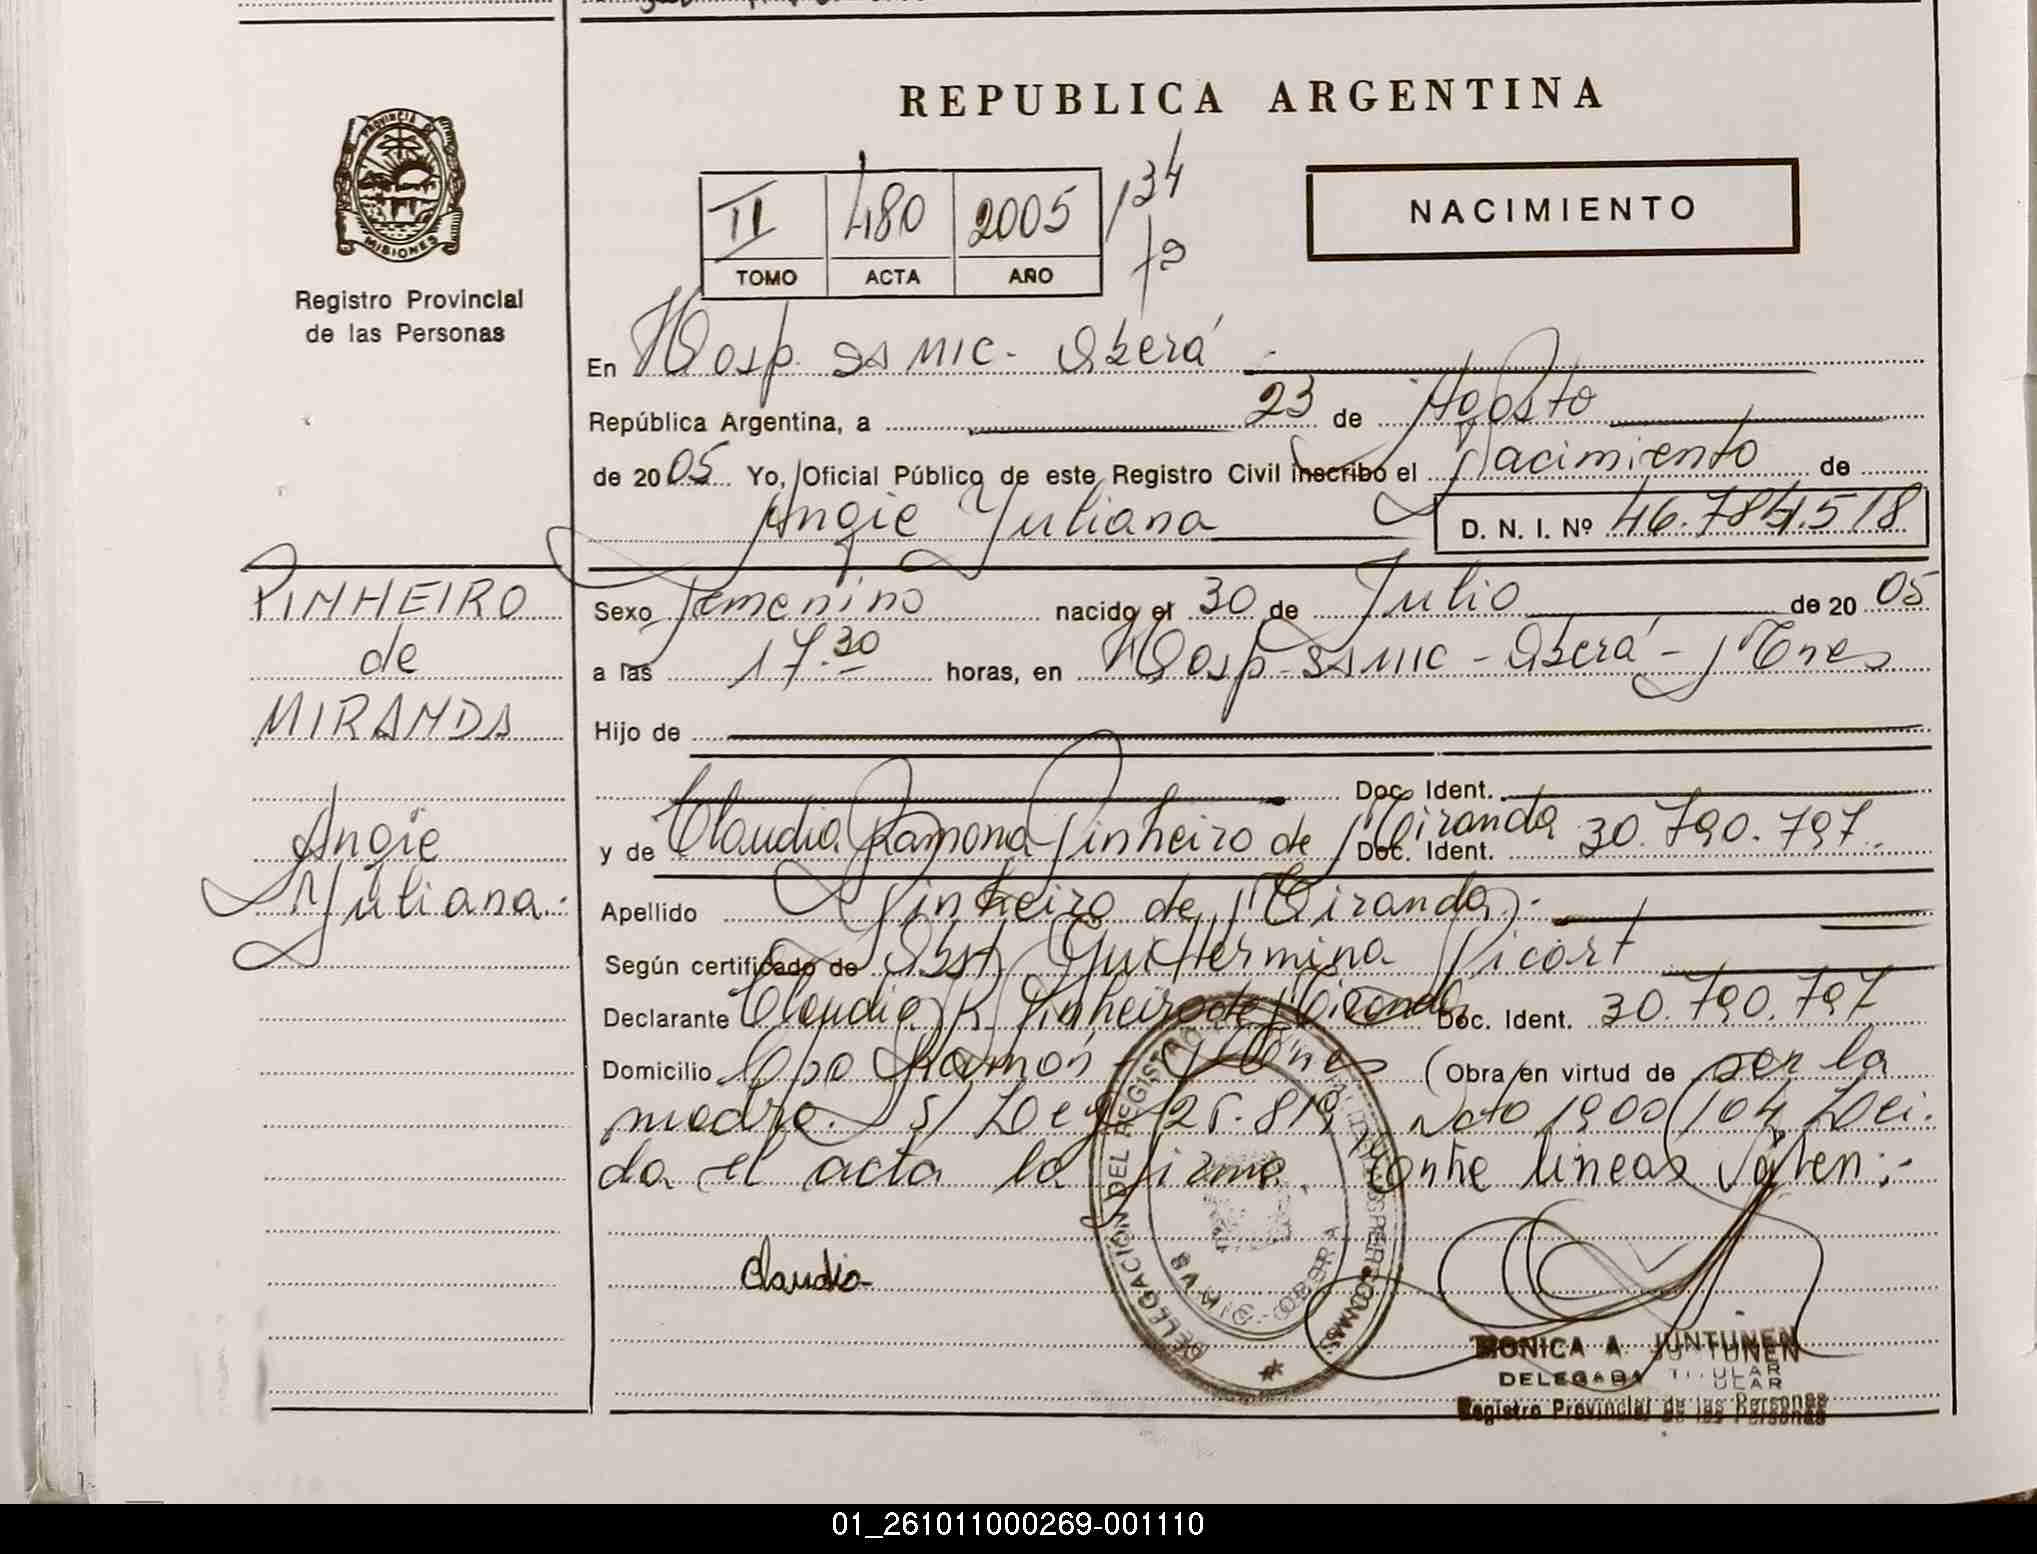 REPUBLICA ARGENTINA
PROVINCIA DE
MISIONES
Registro Provincial
de las Personas
II 480 2005 /34
TOMO ACTA AÑO
NACIMIENTO
En Hosp. SAMIC - Oberá
República Argentina, a 23 de Agosto
de 2005 Yo, Oficial Público de este Registro Civil inscribo el Nacimiento de
Angie Yuliana D. N. I. Nº 46.784.518
PINHEIRO
de
MIRANDA
Angie
Yuliana.
Sexo Femenino nacido el 30 de Julio de 2005
a las 17.30 horas, en Hosp. SAMIC - Oberá - Mnes
Hijo de
Doc. Ident.
y de Claudia Ramona Pinheiro de Miranda Doc. Ident. 30.790.797
Apellido Pinheiro de Miranda.-
Según certificado de Obst. Guillermina Picort
Declarante Claudia R. Pinheiro de Miranda Doc. Ident. 30.790.797
Domicilio Cpo Ramón - Mnes (Obra en virtud de ser la
madre. S/ Ley 25.819 Dcto 1900/04 Lei-
da el acta la firma. Entre lineas Valen:-
Claudia
DELEGACIÓN DEL REGISTRO
MONICA A. JUNTUNEN
DELEGADA TITULAR
Registro Provincial de las Personas
01_261011000269-001110